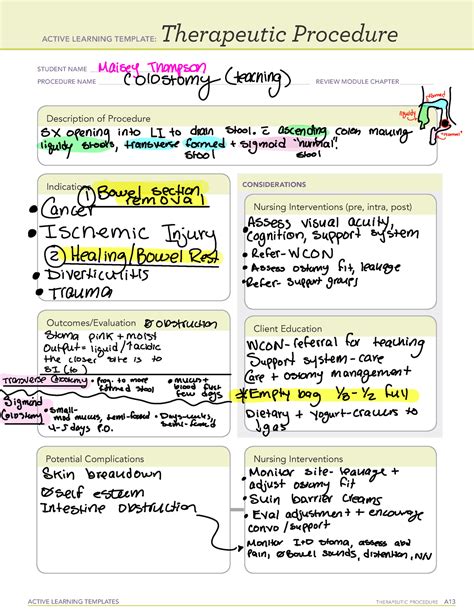 ACTIVE LEARNING TEMPLATE: Therapeutic Procedure
STUDENT NAME Maisey Thompson
PROCEDURE NAME Colostomy (teaching) REVIEW MODULE CHAPTER
formed
liquidy
"normal"
Description of Procedure
SX opening into LI to drain stool. c̄ ascending colon making
liquidy stools, transverse formed + sigmoid "normal"
stool
Indications
① Bowel section
removal
• Cancer
• Ischemic Injury
② Healing/Bowel Rest
• Diverticulitis
• Trauma
CONSIDERATIONS
Nursing Interventions (pre, intra, post)
• Assess visual acuity,
cognition, support system
• Refer-WCON
• Assess ostomy fit, leakage
• Refer- support groups
Outcomes/Evaluation Ø obstruction
Stoma pink + moist
Output = liquid/acidic
the closer site is to
SI (to)
Transverse Colostomy • prog. to more formed stool • mucus + blood first few days
Sigmoid Colostomy • Small-mod mucus, semi-formed 4-5 days P.O. • Days-wks, semi-form'd
Client Education
WCON-referral for teaching
Support system-care
Care + ostomy management
* Empty bag ⅓-½ full
Dietary + yogurt-crackers to
↓gas
Potential Complications
Skin breakdown
Ø self esteem
Intestine obstruction
Nursing Interventions
• Monitor site- leakage +
adjust ostomy fit
• Skin barrier creams
• Eval adjustment + encourage
convo/support
• Monitor I+O stoma, assess abd
pain, Ø bowel sounds, distention, N/V
ACTIVE LEARNING TEMPLATES
THERAPEUTIC PROCEDURE A13